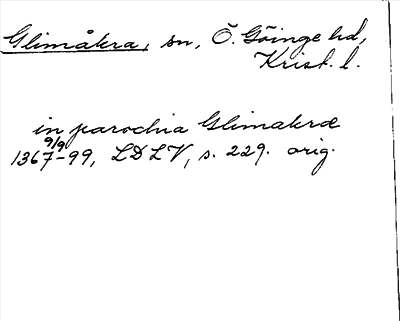 Glimåkra, sn, Ö. Göinge hd,
Krist. l.
in parochia Glimakræ
9/9
1367-99, LDLV, s. 229. orig.